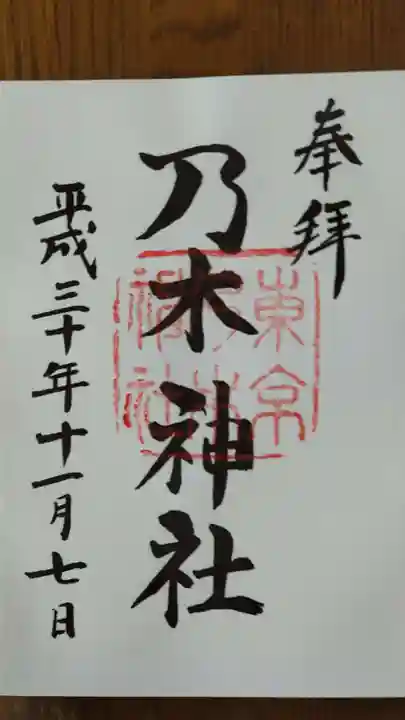 奉拝
乃木神社
東京
乃木
神社
平成三十年十一月七日